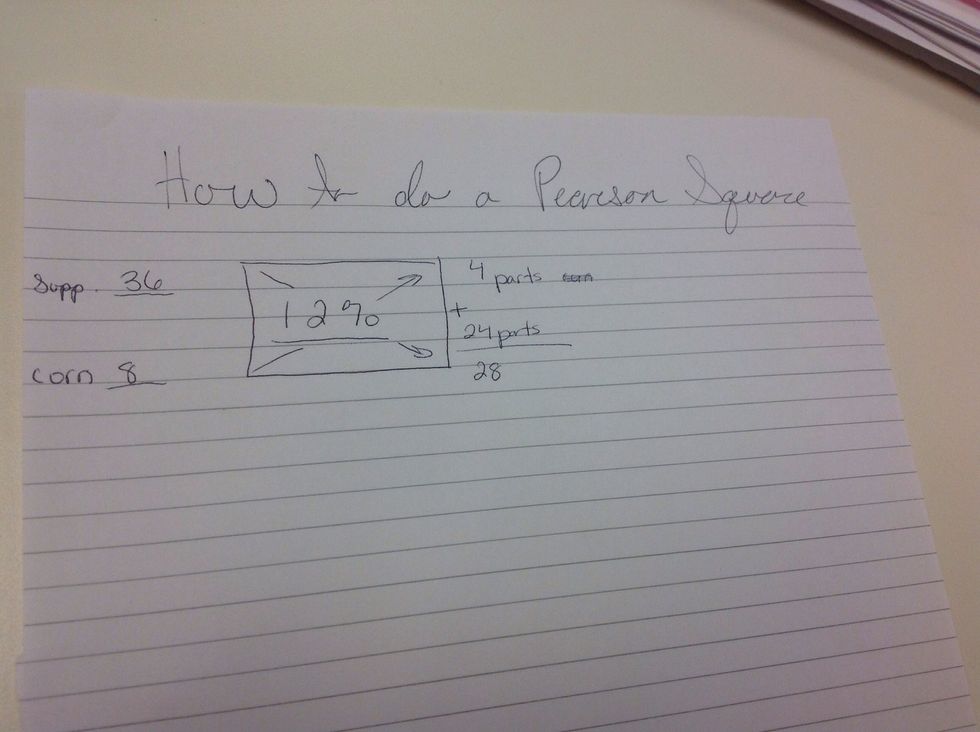 How to do a Pearson Square
Supp. 36
12%
4 parts
+
24 parts
corn 8
28